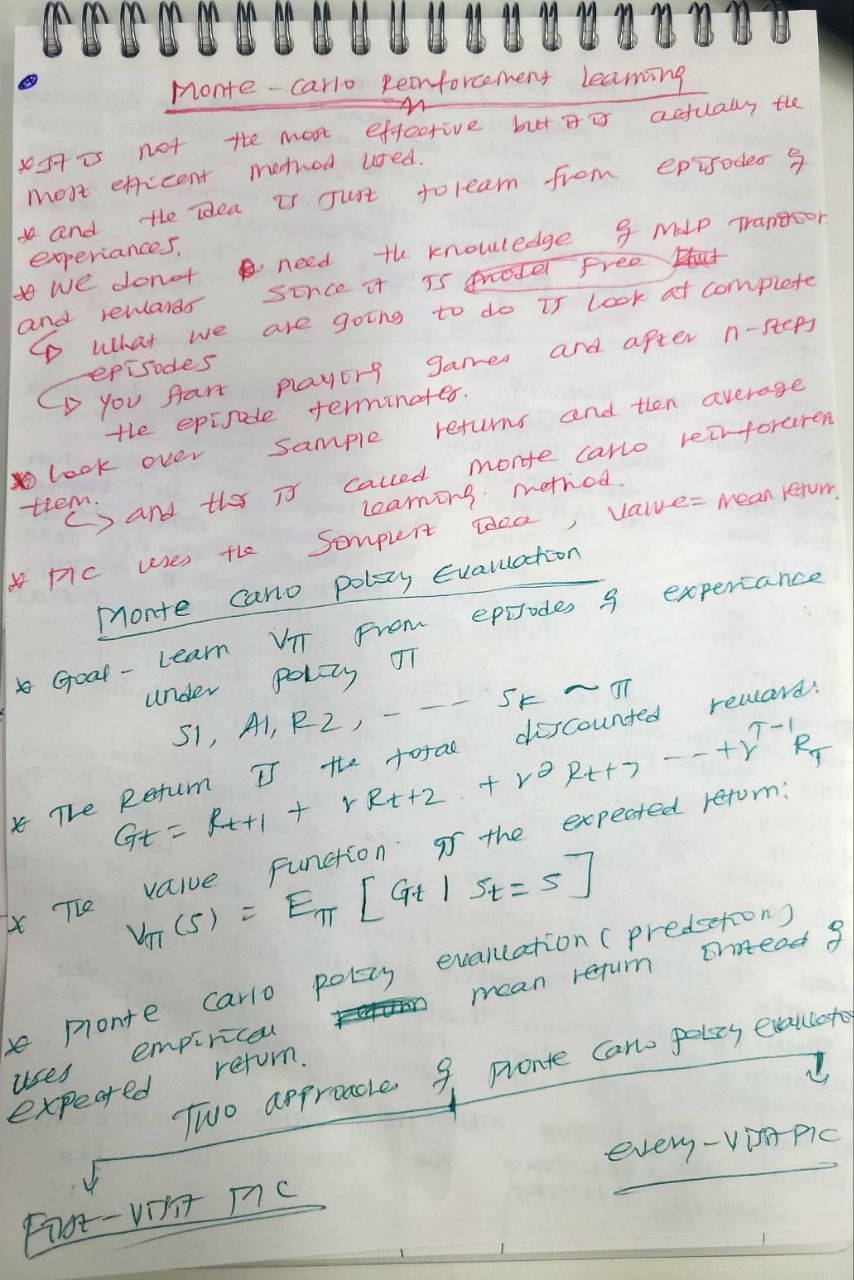 Monte-Carlo Reinforcement learning
* It is not the most effective but it is actually the
most efficent method used.
* and the idea is Just to learn from episodes of
experiances.
* we donot need the knowledge of MDP Transitior
and rewards since it is model Free
What we are going to do is look at complete
episodes
You start playing games and after n-steps
the episode terminates.
* Look over sample returns and then average
them.
and this is called monte carlo reinforcemen
learning method.
* MC uses the Simplest idea, value = mean return.
Monte Carlo policy Evaluation
* Goal - Learn Vπ from episodes of experiance
under policy π
S1, A1, R2, - --- Sk ~ π
* The Return is the total discounted reward:
Gt = Rt+1 + γRt+2 + γ² Rt+3 --- +γ^T-1 RT
* The value Function is the expected return:
Vπ(S) = Eπ [Gt | St = S]
* Monte Carlo policy evaluation (prediction)
uses empirical mean return instead of
expected return.
Two approaches of Monte Carlo policy evaluatio
every-Visit MC
First-Visit MC